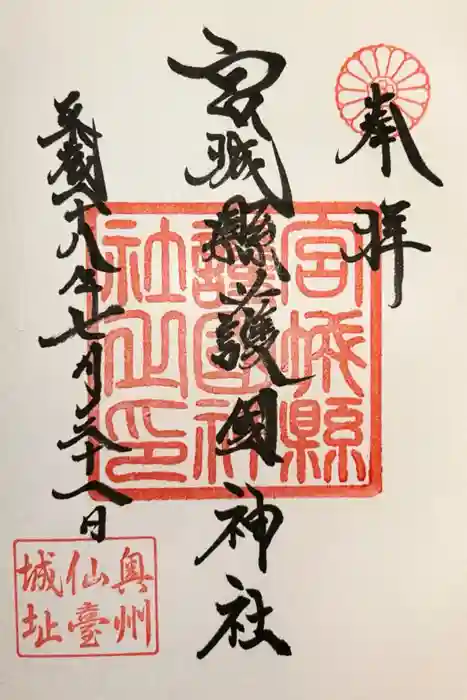 奉拝
宮城縣護國神社
宮城縣
護國神
社之印
平成二十八年七月三十一日
奥州
仙臺
城址